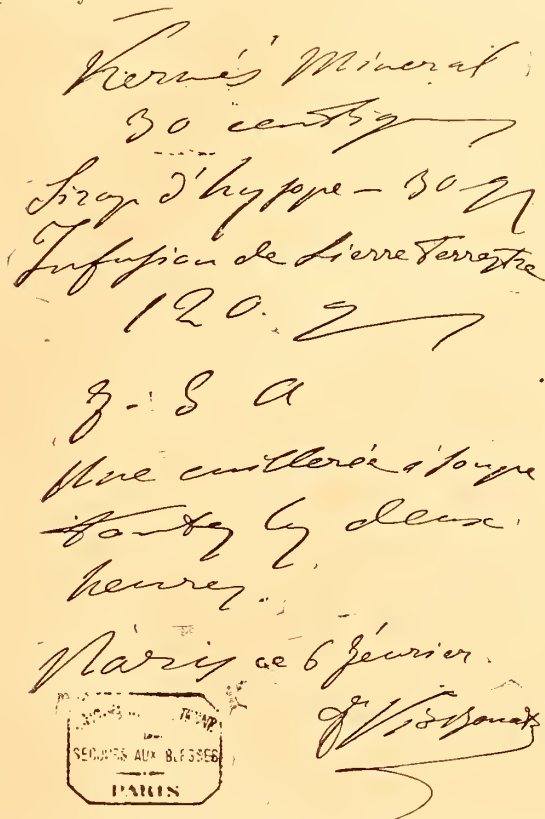 Kermès Minéral
30 centigr
Sirop d'hysope – 30 gr
Infusion de Lierre Terrestre
120. g
F. S A
Une cuillerée à soupe
toutes les deux
heures.
Paris ce 6 février.
Dr
SECOURS AUX BLESSÉS
PARIS